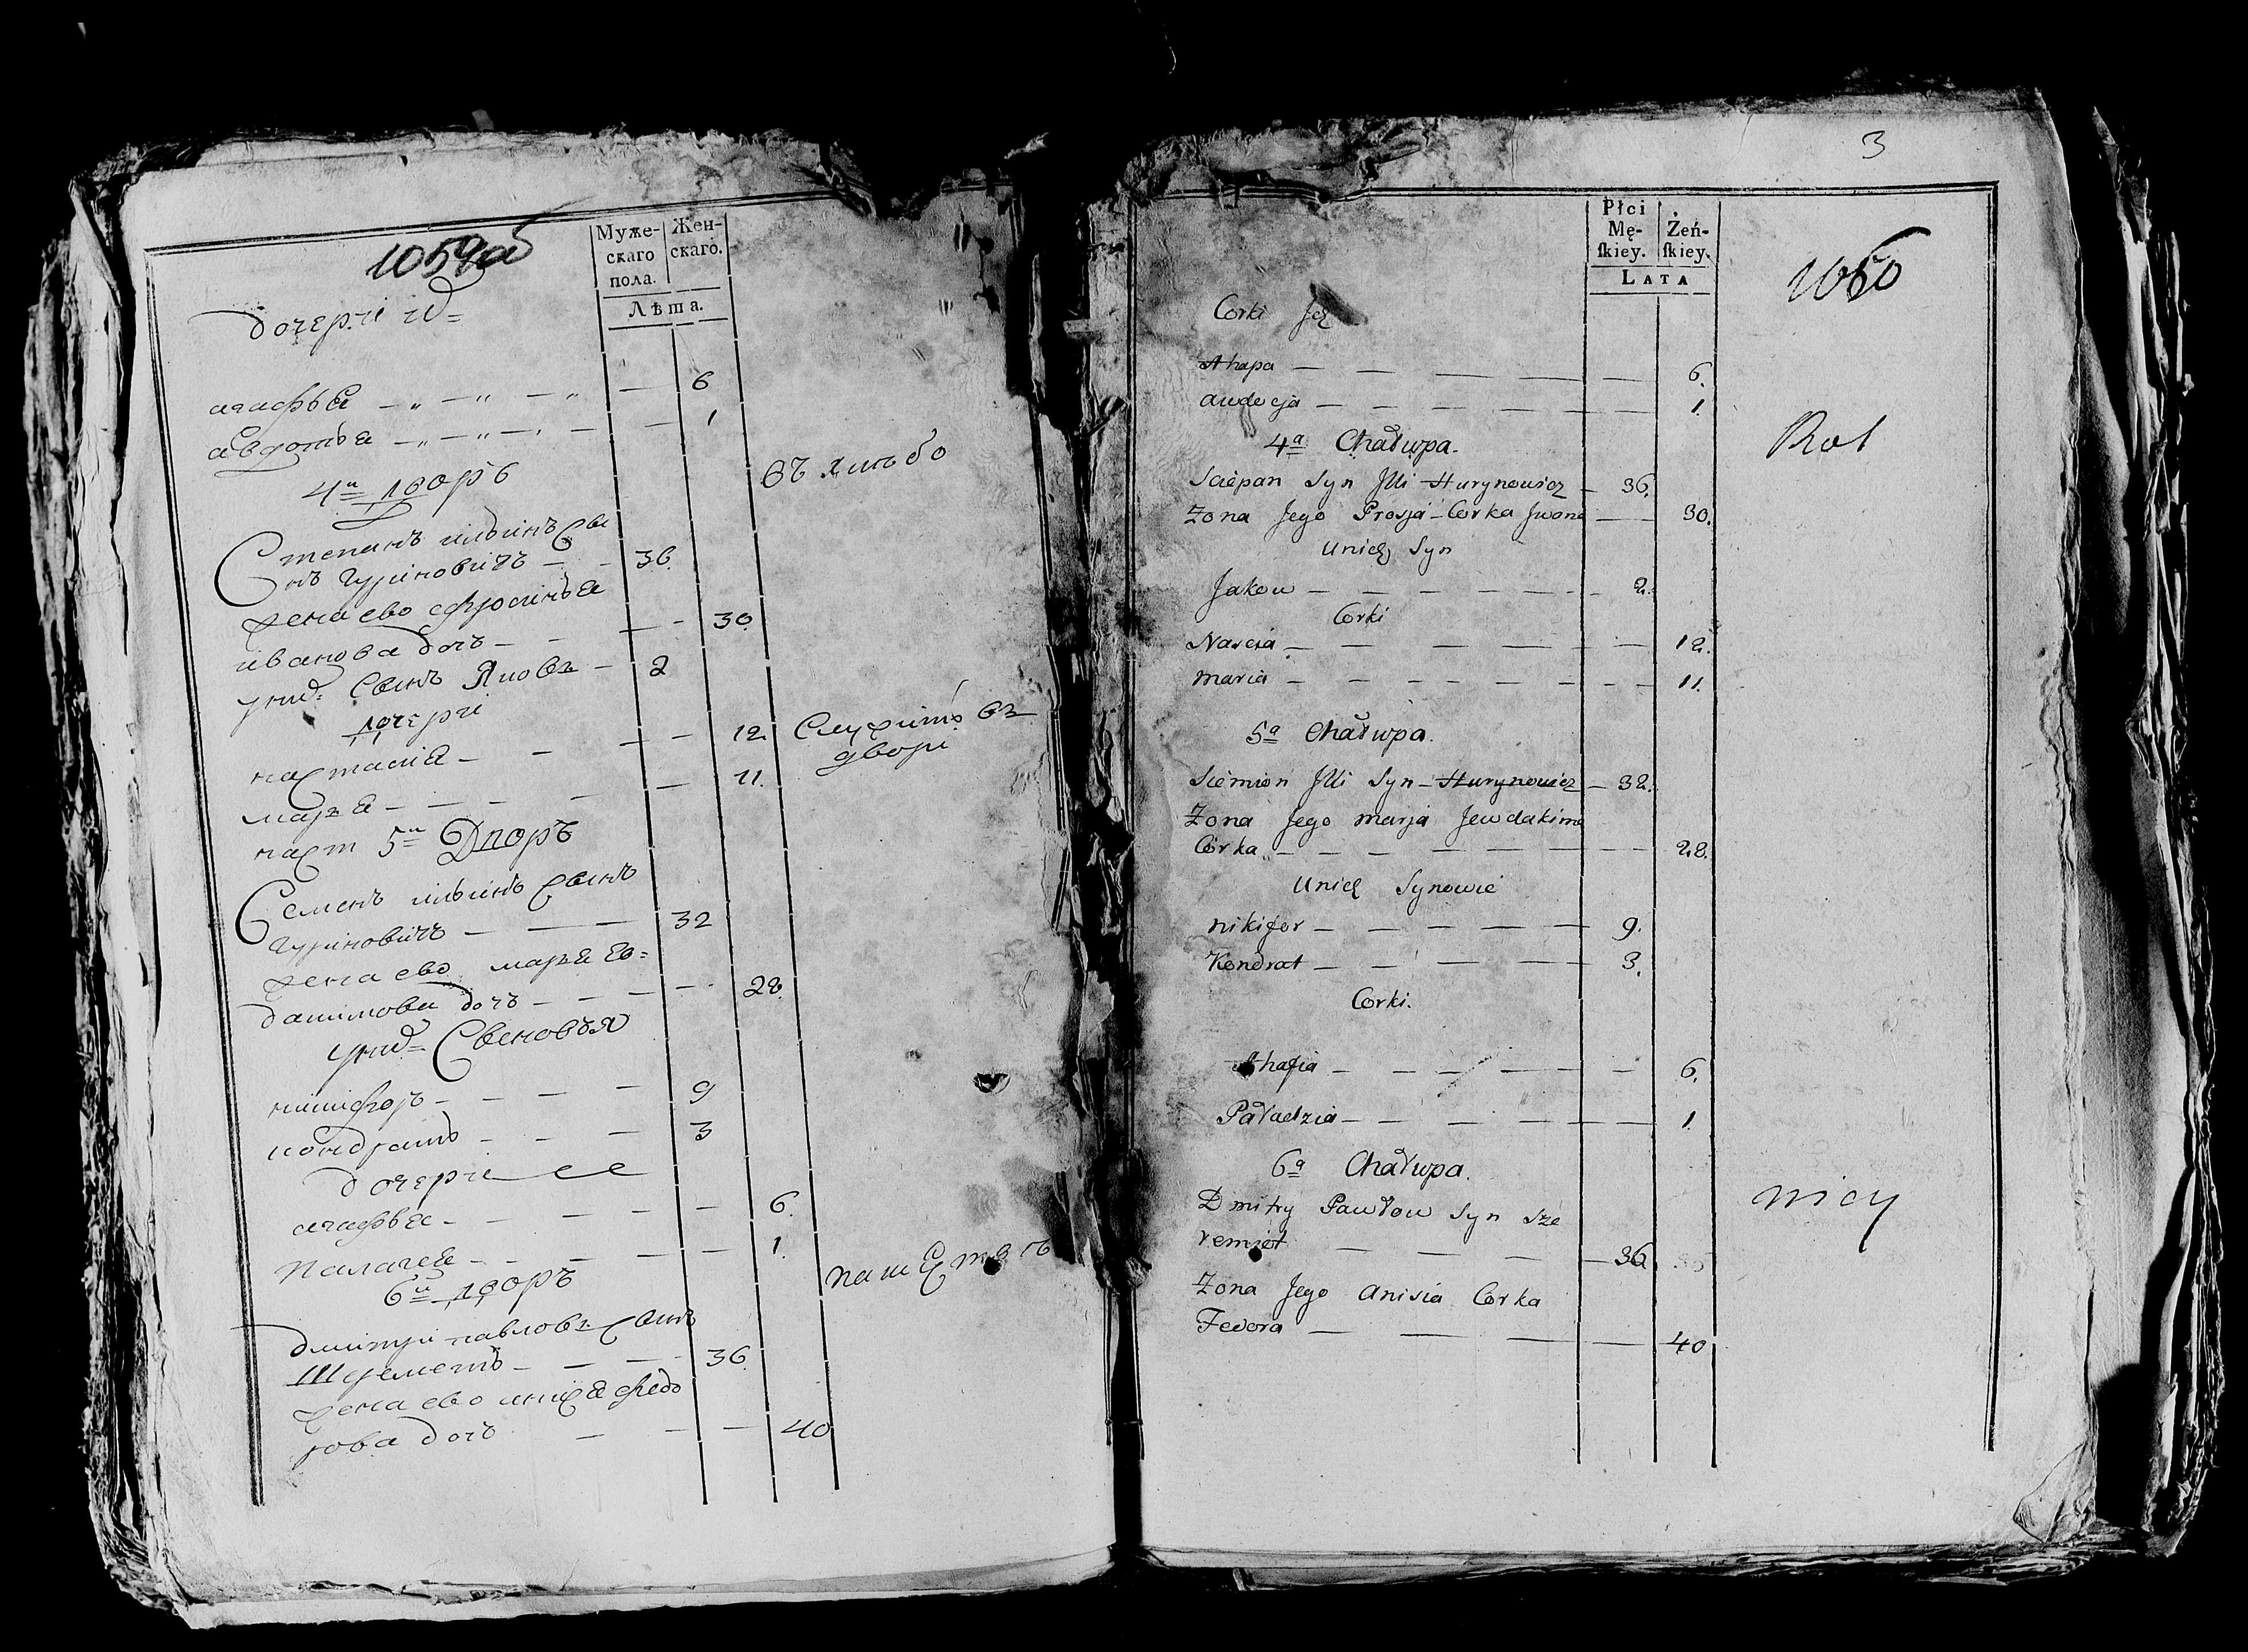 Муже-
скаго
пола.
Жен-
скаго.
Лѣта.
дочери ид=
агафья 6
авдотья 1
4й дворъ
Степанъ ильинъ сы
нъ гуриновичъ 36.
жена ево ефросинья
иванова дочъ 30.
унид= сынъ Яковъ 2
дочери
настасия 12. Служитъ въ
дворі
марья 11.
5й Дворъ
Семенъ ильинъ сынъ
гуриновичъ 32
жена ево марья ев=
дакимова дочъ 28.
унид= Сыновья
никифоръ 9
кондратъ 3
дочери ее
агафья 6.
палагея 1.
6й дворъ
дмитри павловъ сынъ
Шереметъ 36.
жена ево анисья федо
рова дочъ 40
3
Płci
Mę-
ſkiey.
Żeń-
ſkiey.
LATA
1050
Corki Jch
Ahapa 6.
Audocja 1.
4a Chałupa.
Sciepan Syn Jlli Hurynowicz 36.
Zona Jego Prosja Corka Jwana 30.
Unich Syn
Jakow 2.
Corki
Nascia 12.
Maria 11.
5a Chałupa.
Siemion Jlli Syn Hurynowicz 32.
Zona Jego Marja Jewdakima
Corka 28.
Unich Synowie
Nikifor 9.
Kondrat 3.
Corki.
Ahafia 6.
Paładzia 1.
6a Chałupa.
Dmitry Pawłow Syn Sze
remiet 36
Zona Jego Anisia Corka
Fedora 40